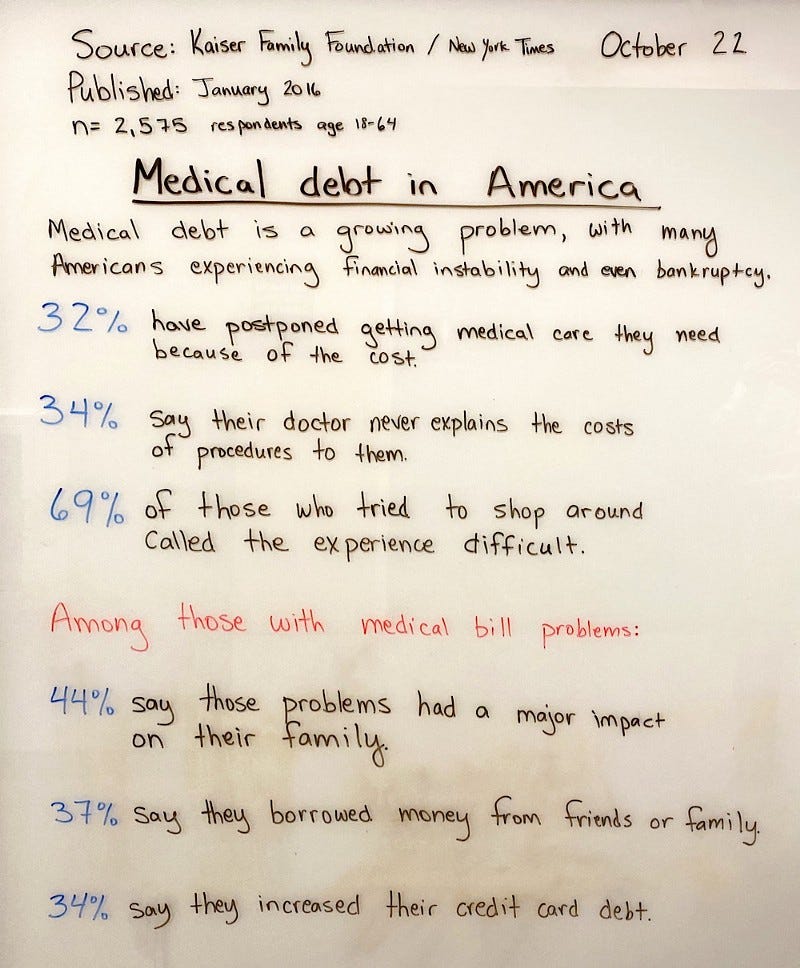 Source: Kaiser Family Foundation / New York Times October 22
Published: January 2016
n= 2,575 respondents age 18-64
Medical debt in America
Medical debt is a growing problem, with many
Americans experiencing financial instability and even bankruptcy.
32% have postponed getting medical care they need
because of the cost.
34% say their doctor never explains the costs
of procedures to them.
69% of those who tried to shop around
Called the experience difficult.
Among those with medical bill problems:
44% say those problems had a major impact
on their family.
37% say they borrowed money from friends or family.
34% say they increased their credit card debt.